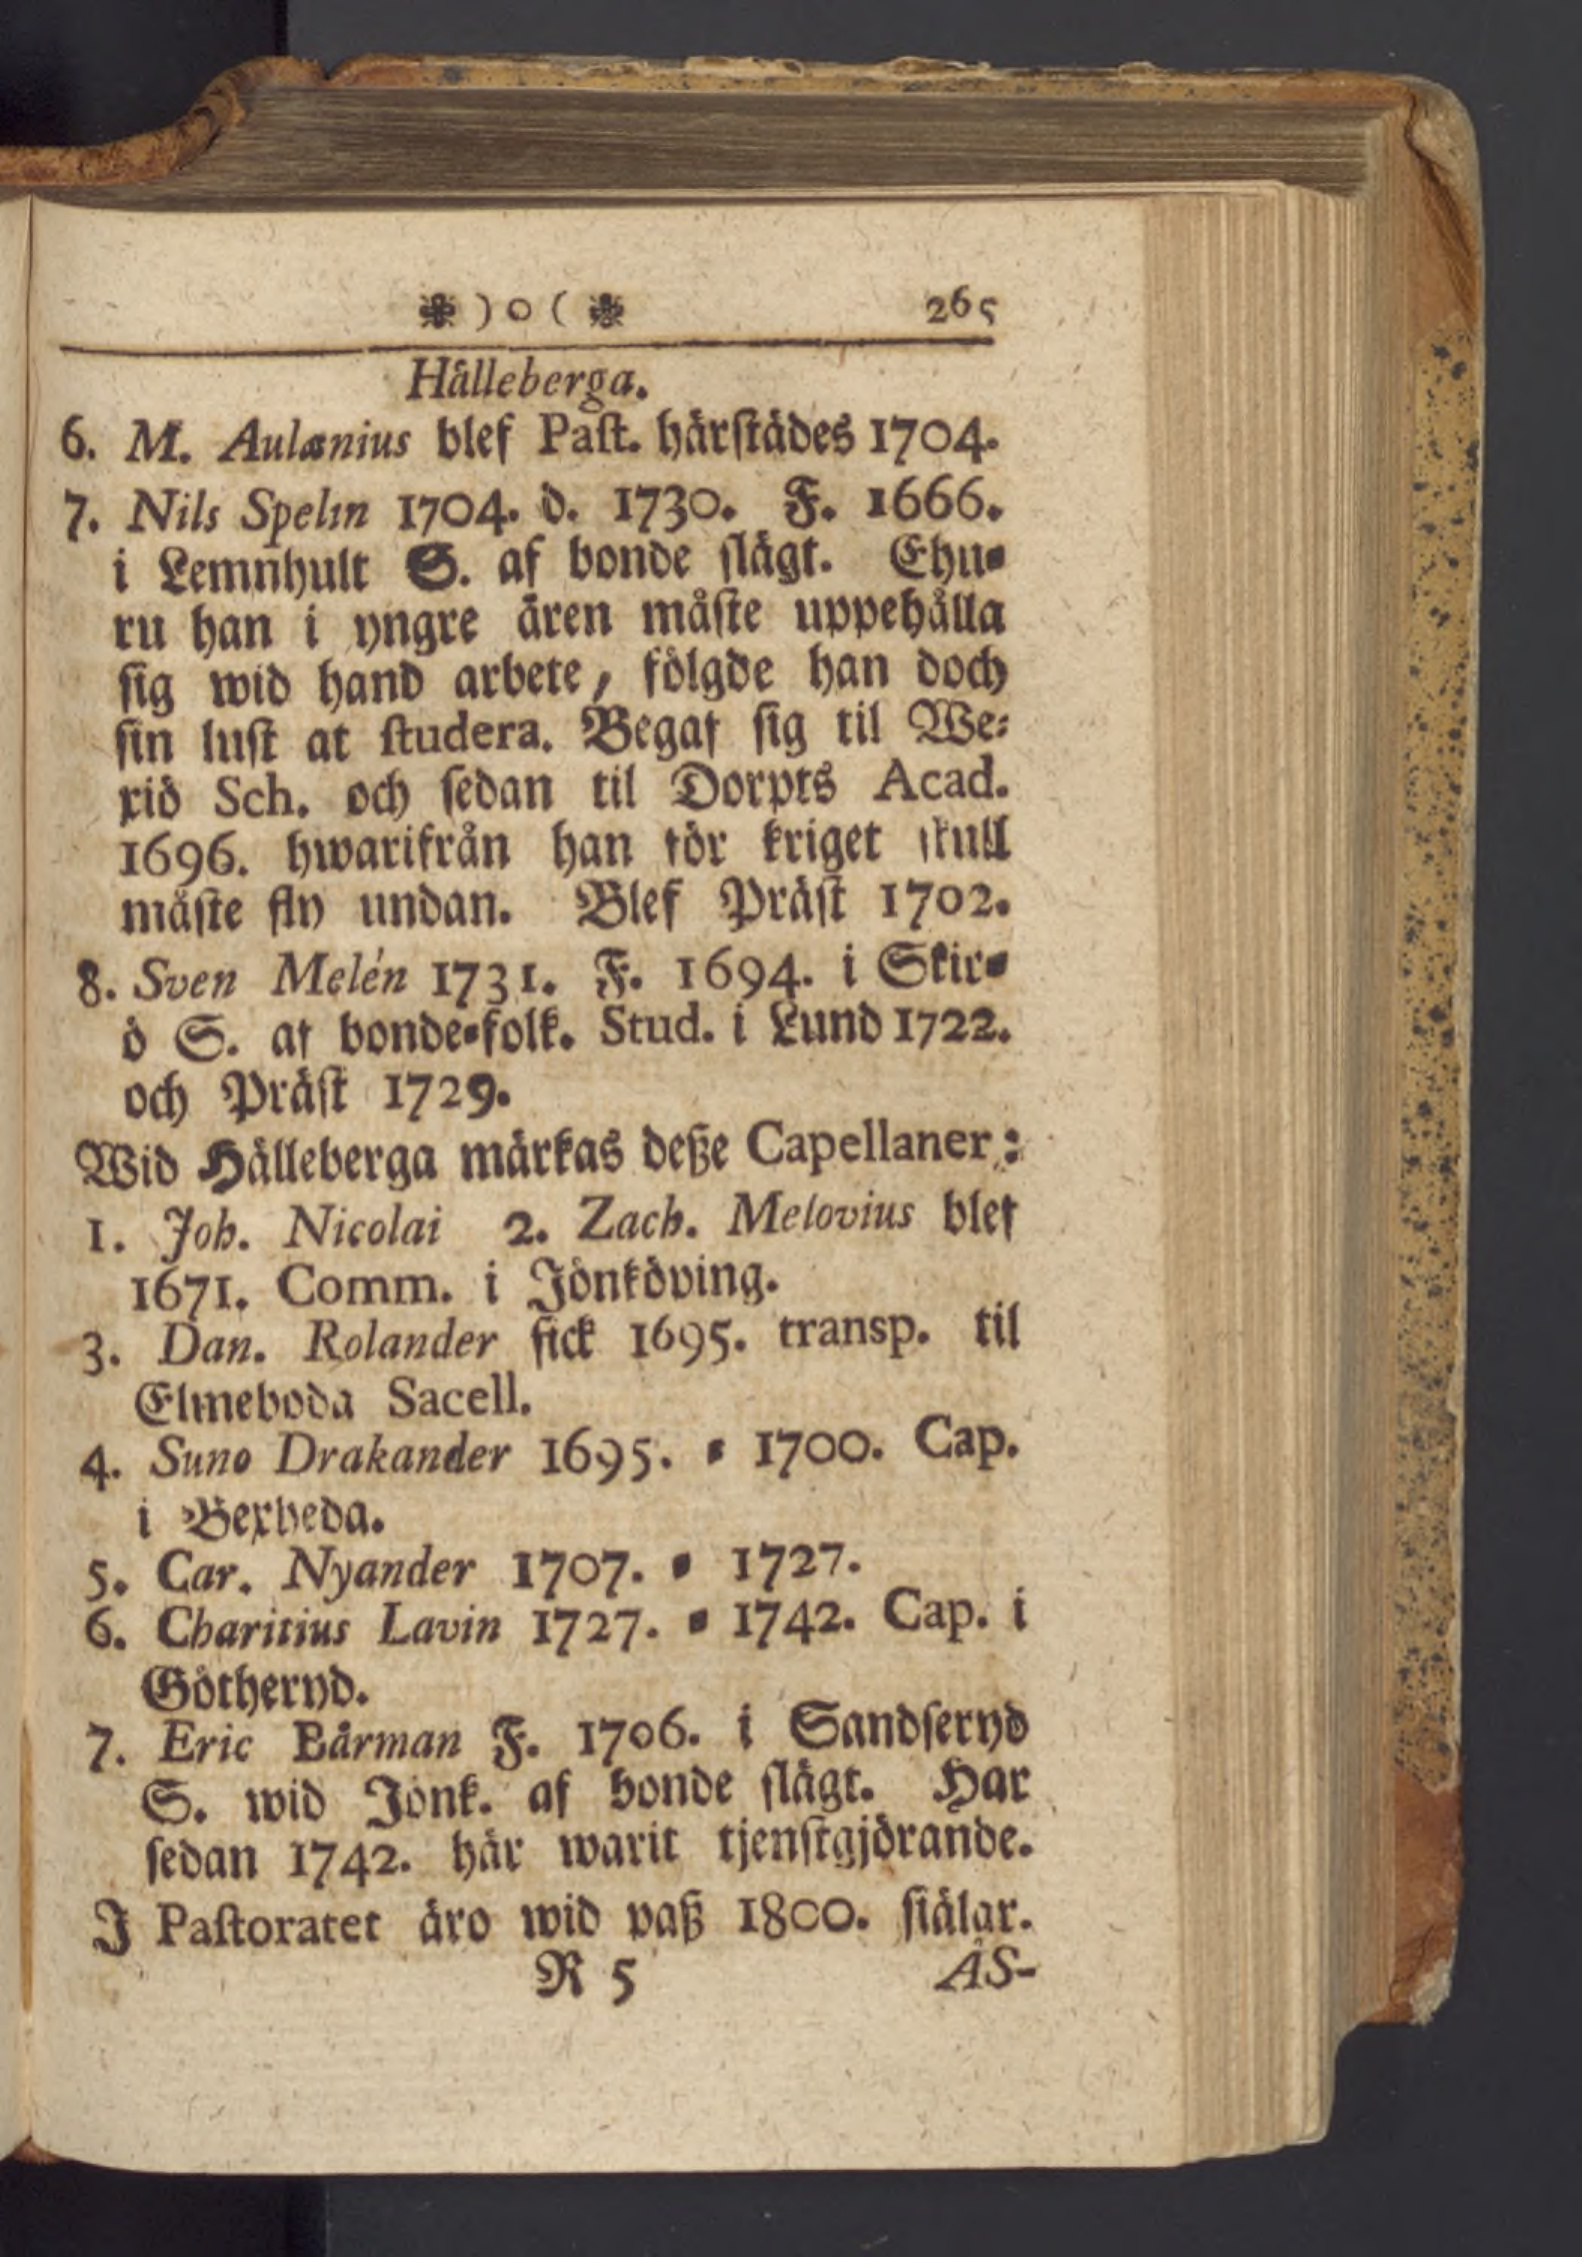 ❋ ) o ( ❋ 265
Hälleberga.
6. M. Aulænius blef Past. härstädes 1704.
7. Nils Spelin 1704. d. 1730. F. 1666.
i Lemnhult S. af bonde slägt. Ehu-
ru han i yngre ären måste uppehålla
sig wid hand arbete, fölgde han doch
sin lust at studera. Begaf sig til We-
xiö Sch. och sedan til Dorpts Acad.
1696. hwarifrån han för kriget skull
måste fly undan. Blef Präst 1702.
8. Sven Melén 1731. F. 1694. i Skir-
ö S. af bonde-folk. Stud. i Lund 1722.
och Präst 1729.
Wid Hälleberga märkas deße Capellaner:
1. Joh. Nicolai 2. Zach. Melovius blef
1671. Comm. i Jönköping.
3. Dan. Rolander fick 1695. transp. til
Elmeboda Sacell.
4. Suno Drakander 1695. - 1700. Cap.
i Bexheda.
5. Car. Nyander 1707. - 1727.
6. Charitius Lavin 1727. - 1742. Cap. i
Götheryd.
7. Eric Bårman F. 1706. i Sandseryd
S. wid Jönk. af bonde slägt. Har
sedan 1742. här warit tjenstgjörande.
J Pastoratet äro wid paß 1800. siälar.
R 5 ÅS-